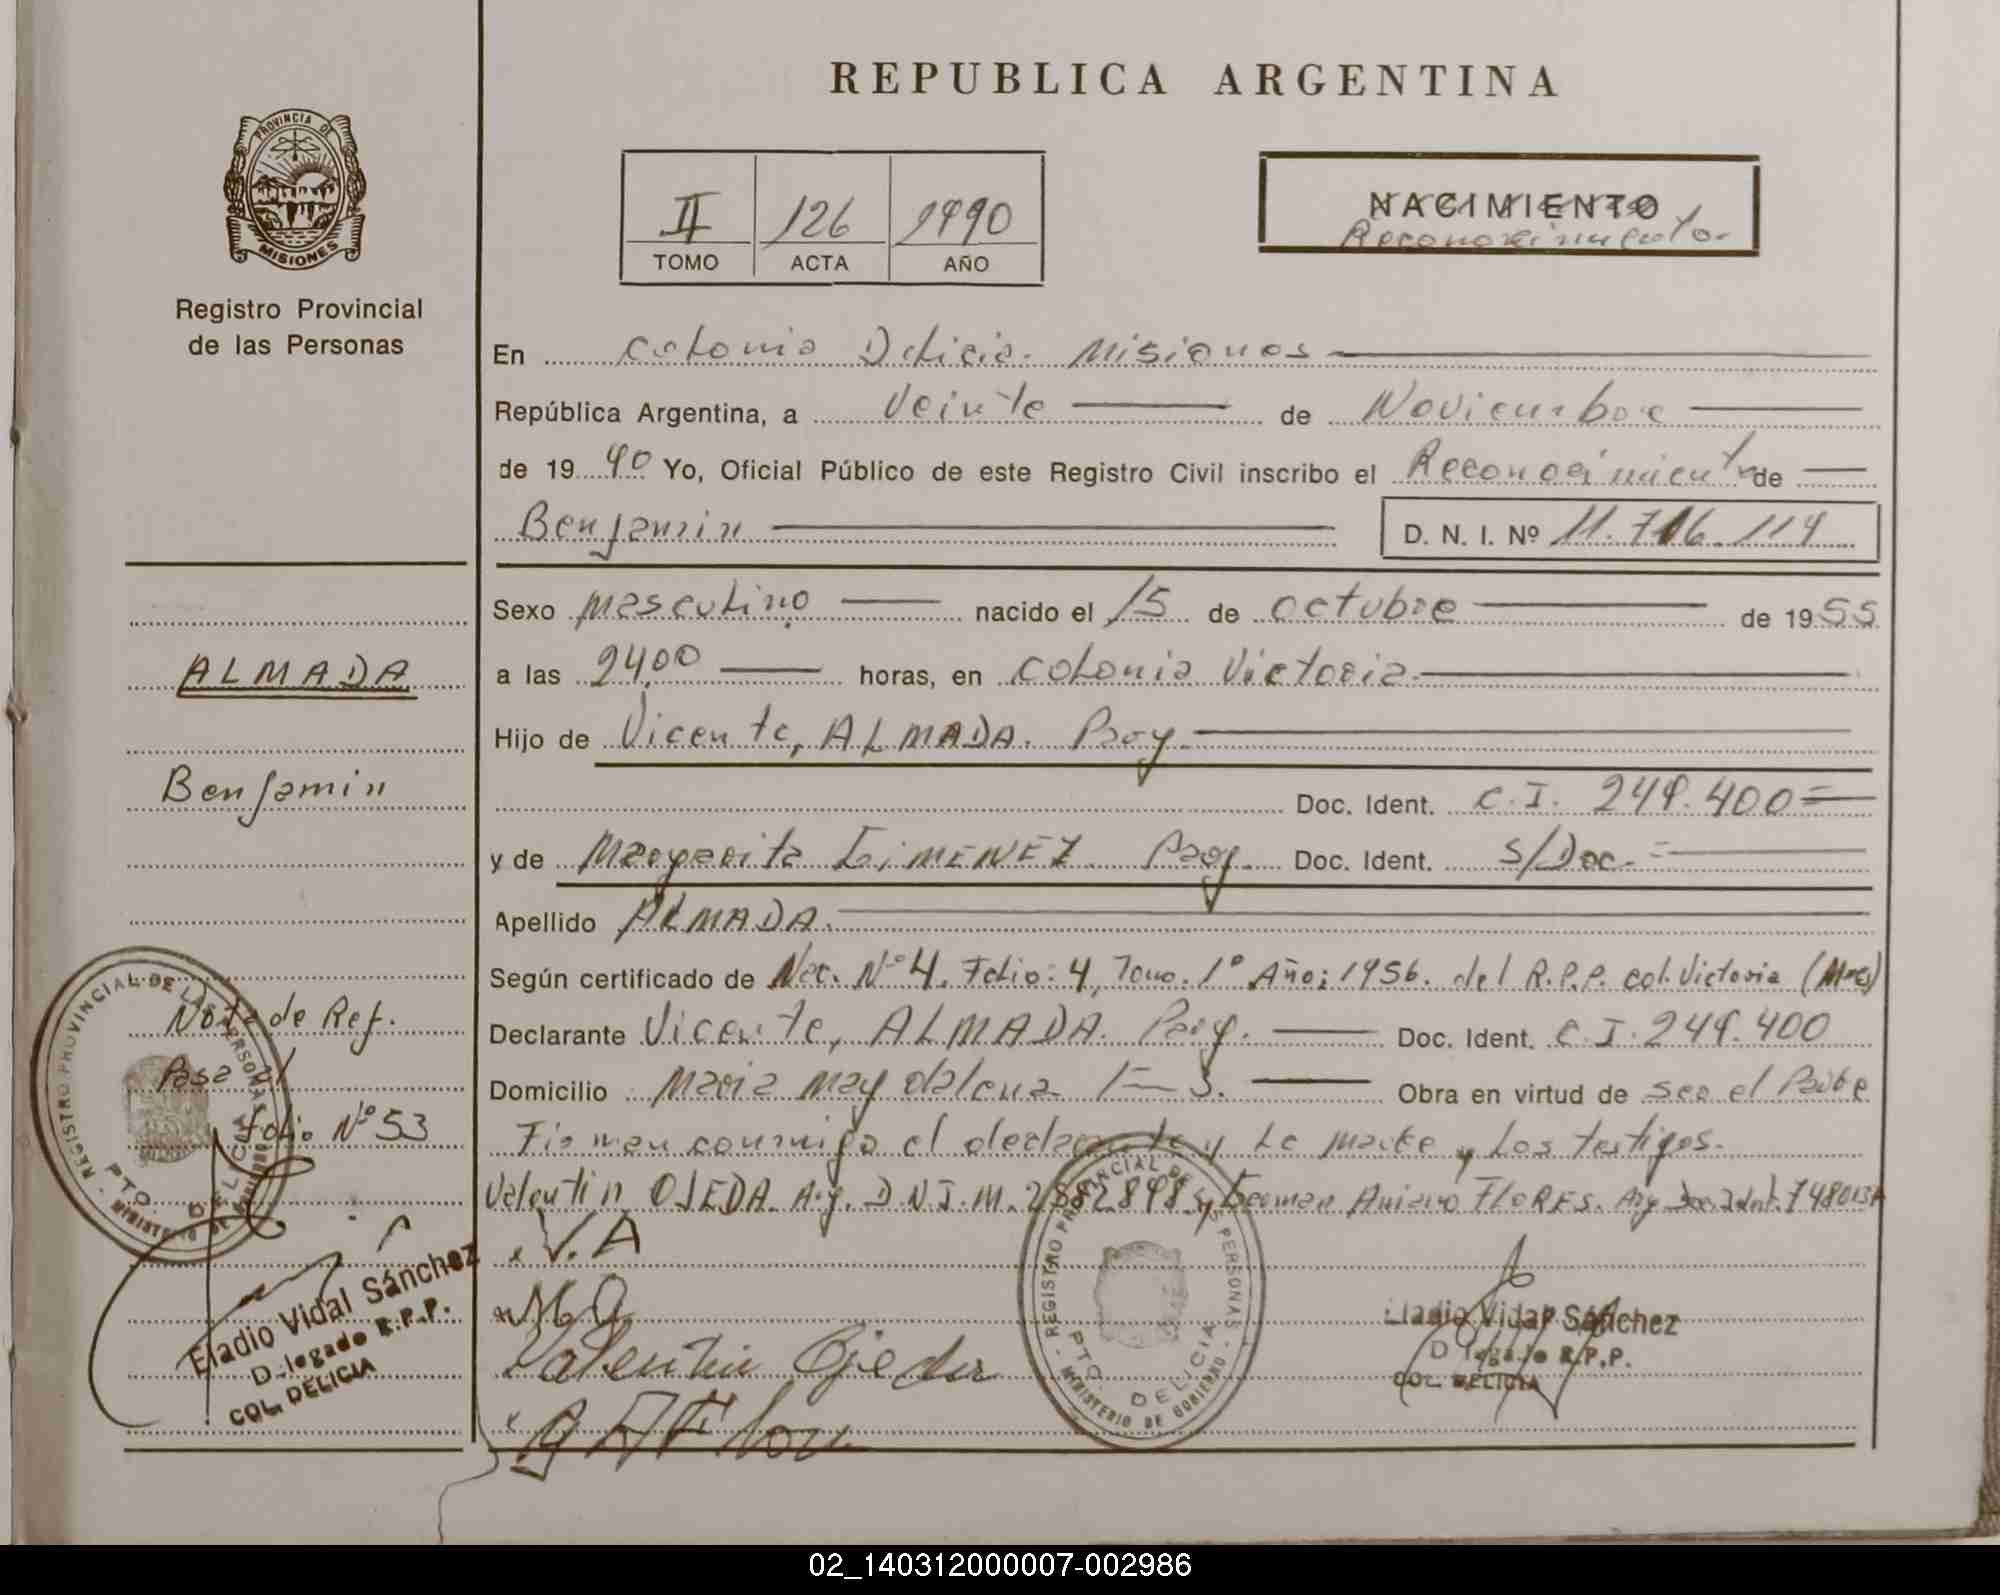 REPUBLICA ARGENTINA
PROVINCIA DE
MISIONES
Registro Provincial
de las Personas
II 126 1990
TOMO ACTA AÑO
NACIMIENTO
Reconocimiento.
En Colonia Delicia. Misiones
República Argentina, a Veinte de Noviembre
de 19 90 Yo, Oficial Público de este Registro Civil inscribo el Reconocimiento de
Benjamin D. N. I. Nº 11.716.119
Sexo masculino nacido el 15 de octubre de 1955
a las 24,00 horas, en Colonia Victoria.
Hijo de Vicente, ALMADA. Pgy.
Doc. Ident. C.I. 249.400=
y de Margarita GIMENEZ. Pgy. Doc. Ident. S/Doc.=
Apellido ALMADA.
Según certificado de Nac. Nº 4, Folio: 4, Tomo. 1º Año: 1956. del R.P.P. col. Victoria (Mnes)
Declarante Vicente, ALMADA. Pgy. Doc. Ident. C.I. 249.400
Domicilio Maria Magdalena Obra en virtud de ser el Padre
Firman conmigo el declarante y La Madre y Los testigos.
Valentin OJEDA. Arg. D.N.I.M. 2882898 y German Aniano FLORES. Arg. Doc. Ident.
V.A
M G
Valentin Ojeda
Eladio Vidal Sánchez
Delegado R.P.P.
COL. DELICIA
REGISTRO PROVINCIAL DE LAS PERSONAS
PTO. DELICIA
MINISTERIO DE GOBIERNO
ALMADA
Benjamin
Nota de Ref.
Pasa al
Folio Nº 53
REGISTRO PROVINCIAL DE LAS PERSONAS
PTO. DELICIA
MINISTERIO DE GOBIERNO
Eladio Vidal Sánchez
Delegado R.P.P.
COL. DELICIA
02_140312000007-002986